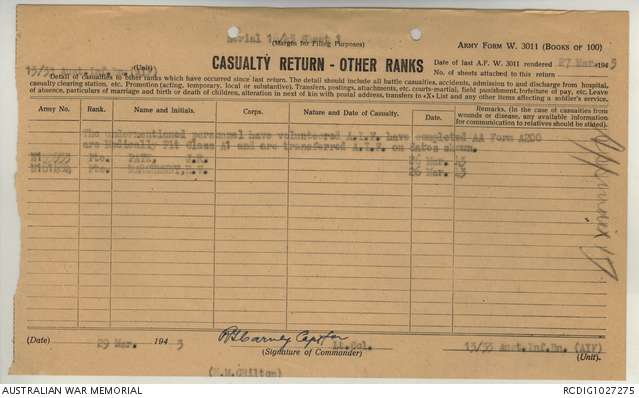 Serial 14/43 Sheet 1
(Margins for Filing Purposes)
ARMY FORM W. 3011 (BOOKS OF 100)
CASUALTY RETURN - OTHER RANKS
Date of last A.F. W. 3011 rendered 27 Mar. 194 3
(Unit)
No. of sheets attached to this return
Detail of casualties to other ranks which have occurred since last return. The detail should include all battle casualties, accidents, admissions to and discharges from hospital,
casualty clearing station, etc. Promotion (acting, temporary, local or substantive). Transfers, postings, attachments, etc. courts-martial, field punishment, forfeiture of pay, etc. Leave
of absence, particulars of marriage and birth or death of children, alteration in next of kin with postal address, transfers to «X» List and any other items affecting a soldier's service.
Army No.
Rank.
Name and Initials.
Corps.
Nature and Date of Casualty.
Date.
Remarks. (In the case of casualties from
wounds or disease, any available information
for communication to relatives should be stated).
The undermentioned personnel have volunteered A.I.F. have completed AA Form A200
are Medically Fit Class A1 and are transferred A.I.F. on dates shown.
Pte.
Mar.
Pte.
26 Mar.
Appendix
(Date)
29 Mar. 194 3
Capt for
Lt.Col.
13/33 Aust.Inf.Bn. (AIF)
(Signature of Commander)
(Unit).
AUSTRALIAN WAR MEMORIAL
RCDIG1027275